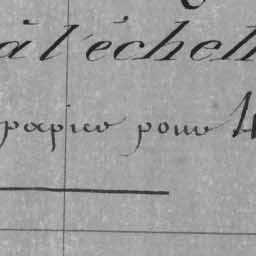 à l'échell
papier pour 4